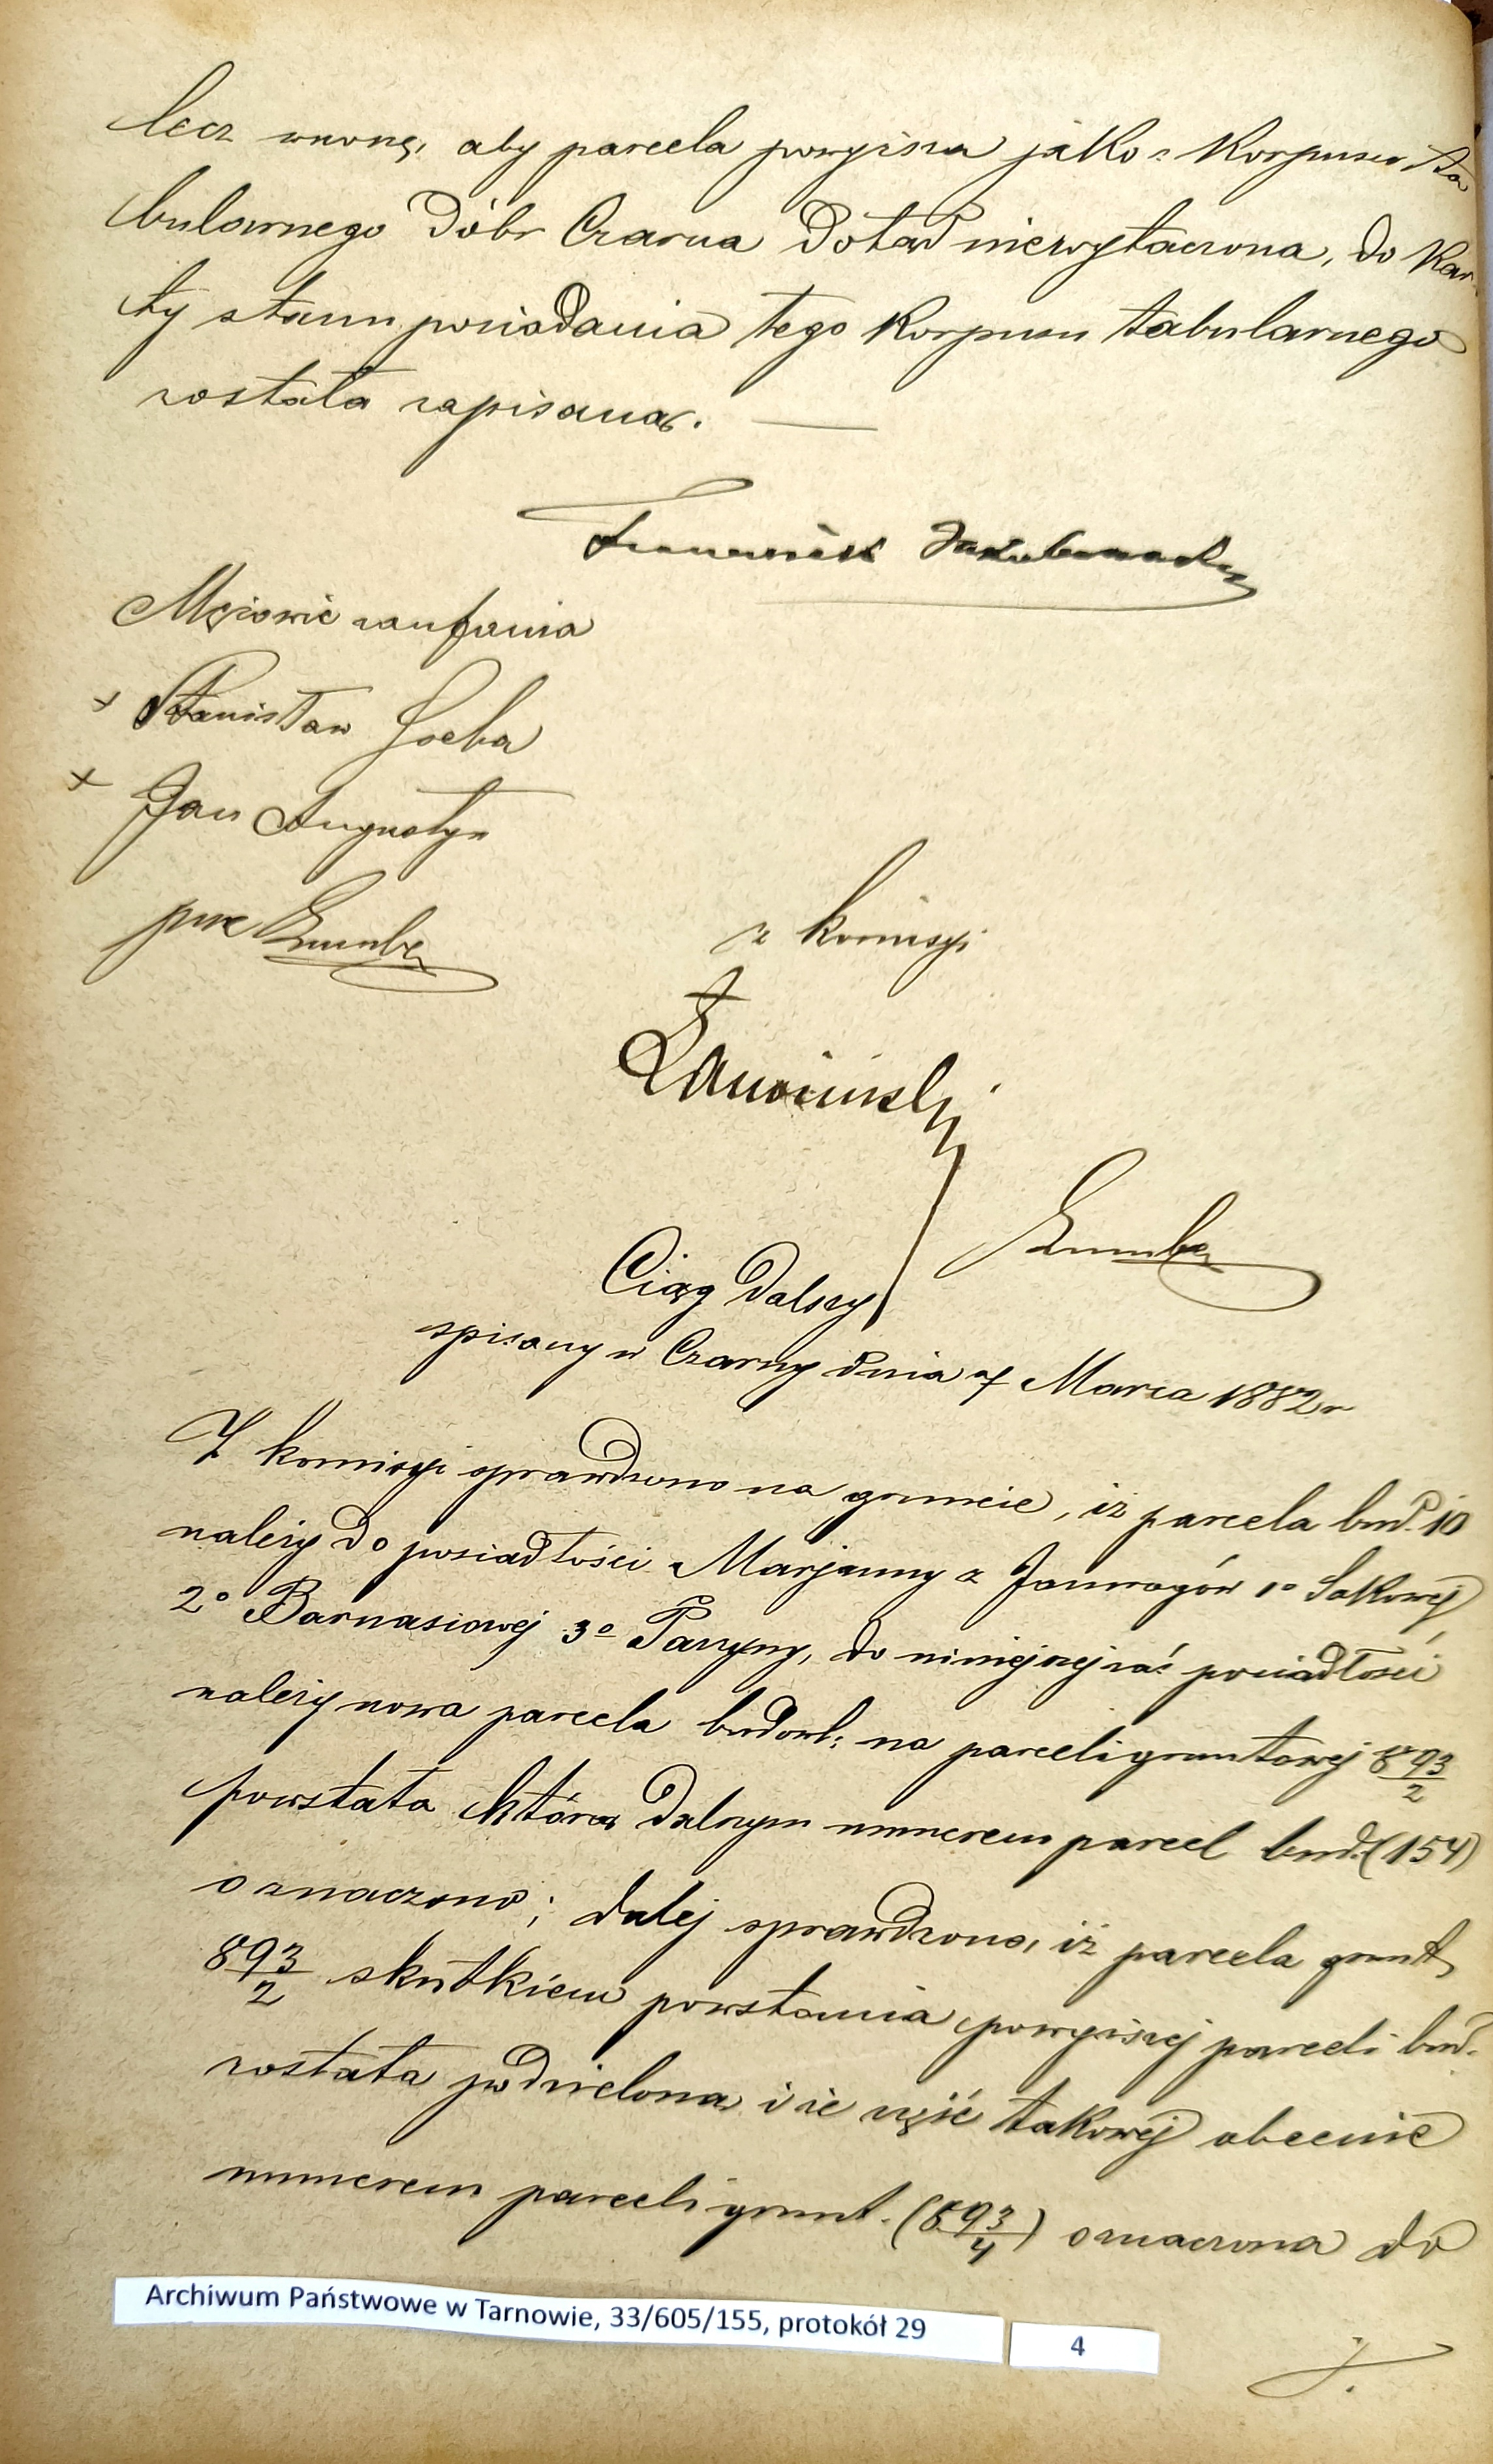 lecz wnoszę, aby parcela powyższa jako z Korpusu ta
bularnego Dóbr Czarna Dotąd niewyłączona, do Kar
ty stanu posiadania tego Korpusu tabularnego
została zapisana. —
Franciszek
Mężowie zaufania
+ Stanisław Soeba
+ Jan Augustyn
prze
z komisyi
Ciąg Dalszy
spisany w Czarny dnia 7 Marca 1882 r
Z komisyi sprawdzono na gruncie, iż parcela bud. 10
należy do posiadłości Marjanny z Janurogów 1º Sakowej
2º Barnasiowej 3º Parzyny, do niniejszej zaś posiadłości
należy nowa parcela budowl: na parceli gruntowej 893/2
powstała którą dalszym numerem parcel bud. (154)
oznaczono; dalej sprawdzono, iż parcela grunt.
893/2 skutkiem powstania powyższej parceli bud.
została podzieloną i że część takowej obecnie
numerem parceli grunt. (893/4) oznaczona do
Archiwum Państwowe w Tarnowie, 33/605/155, protokół 29
4